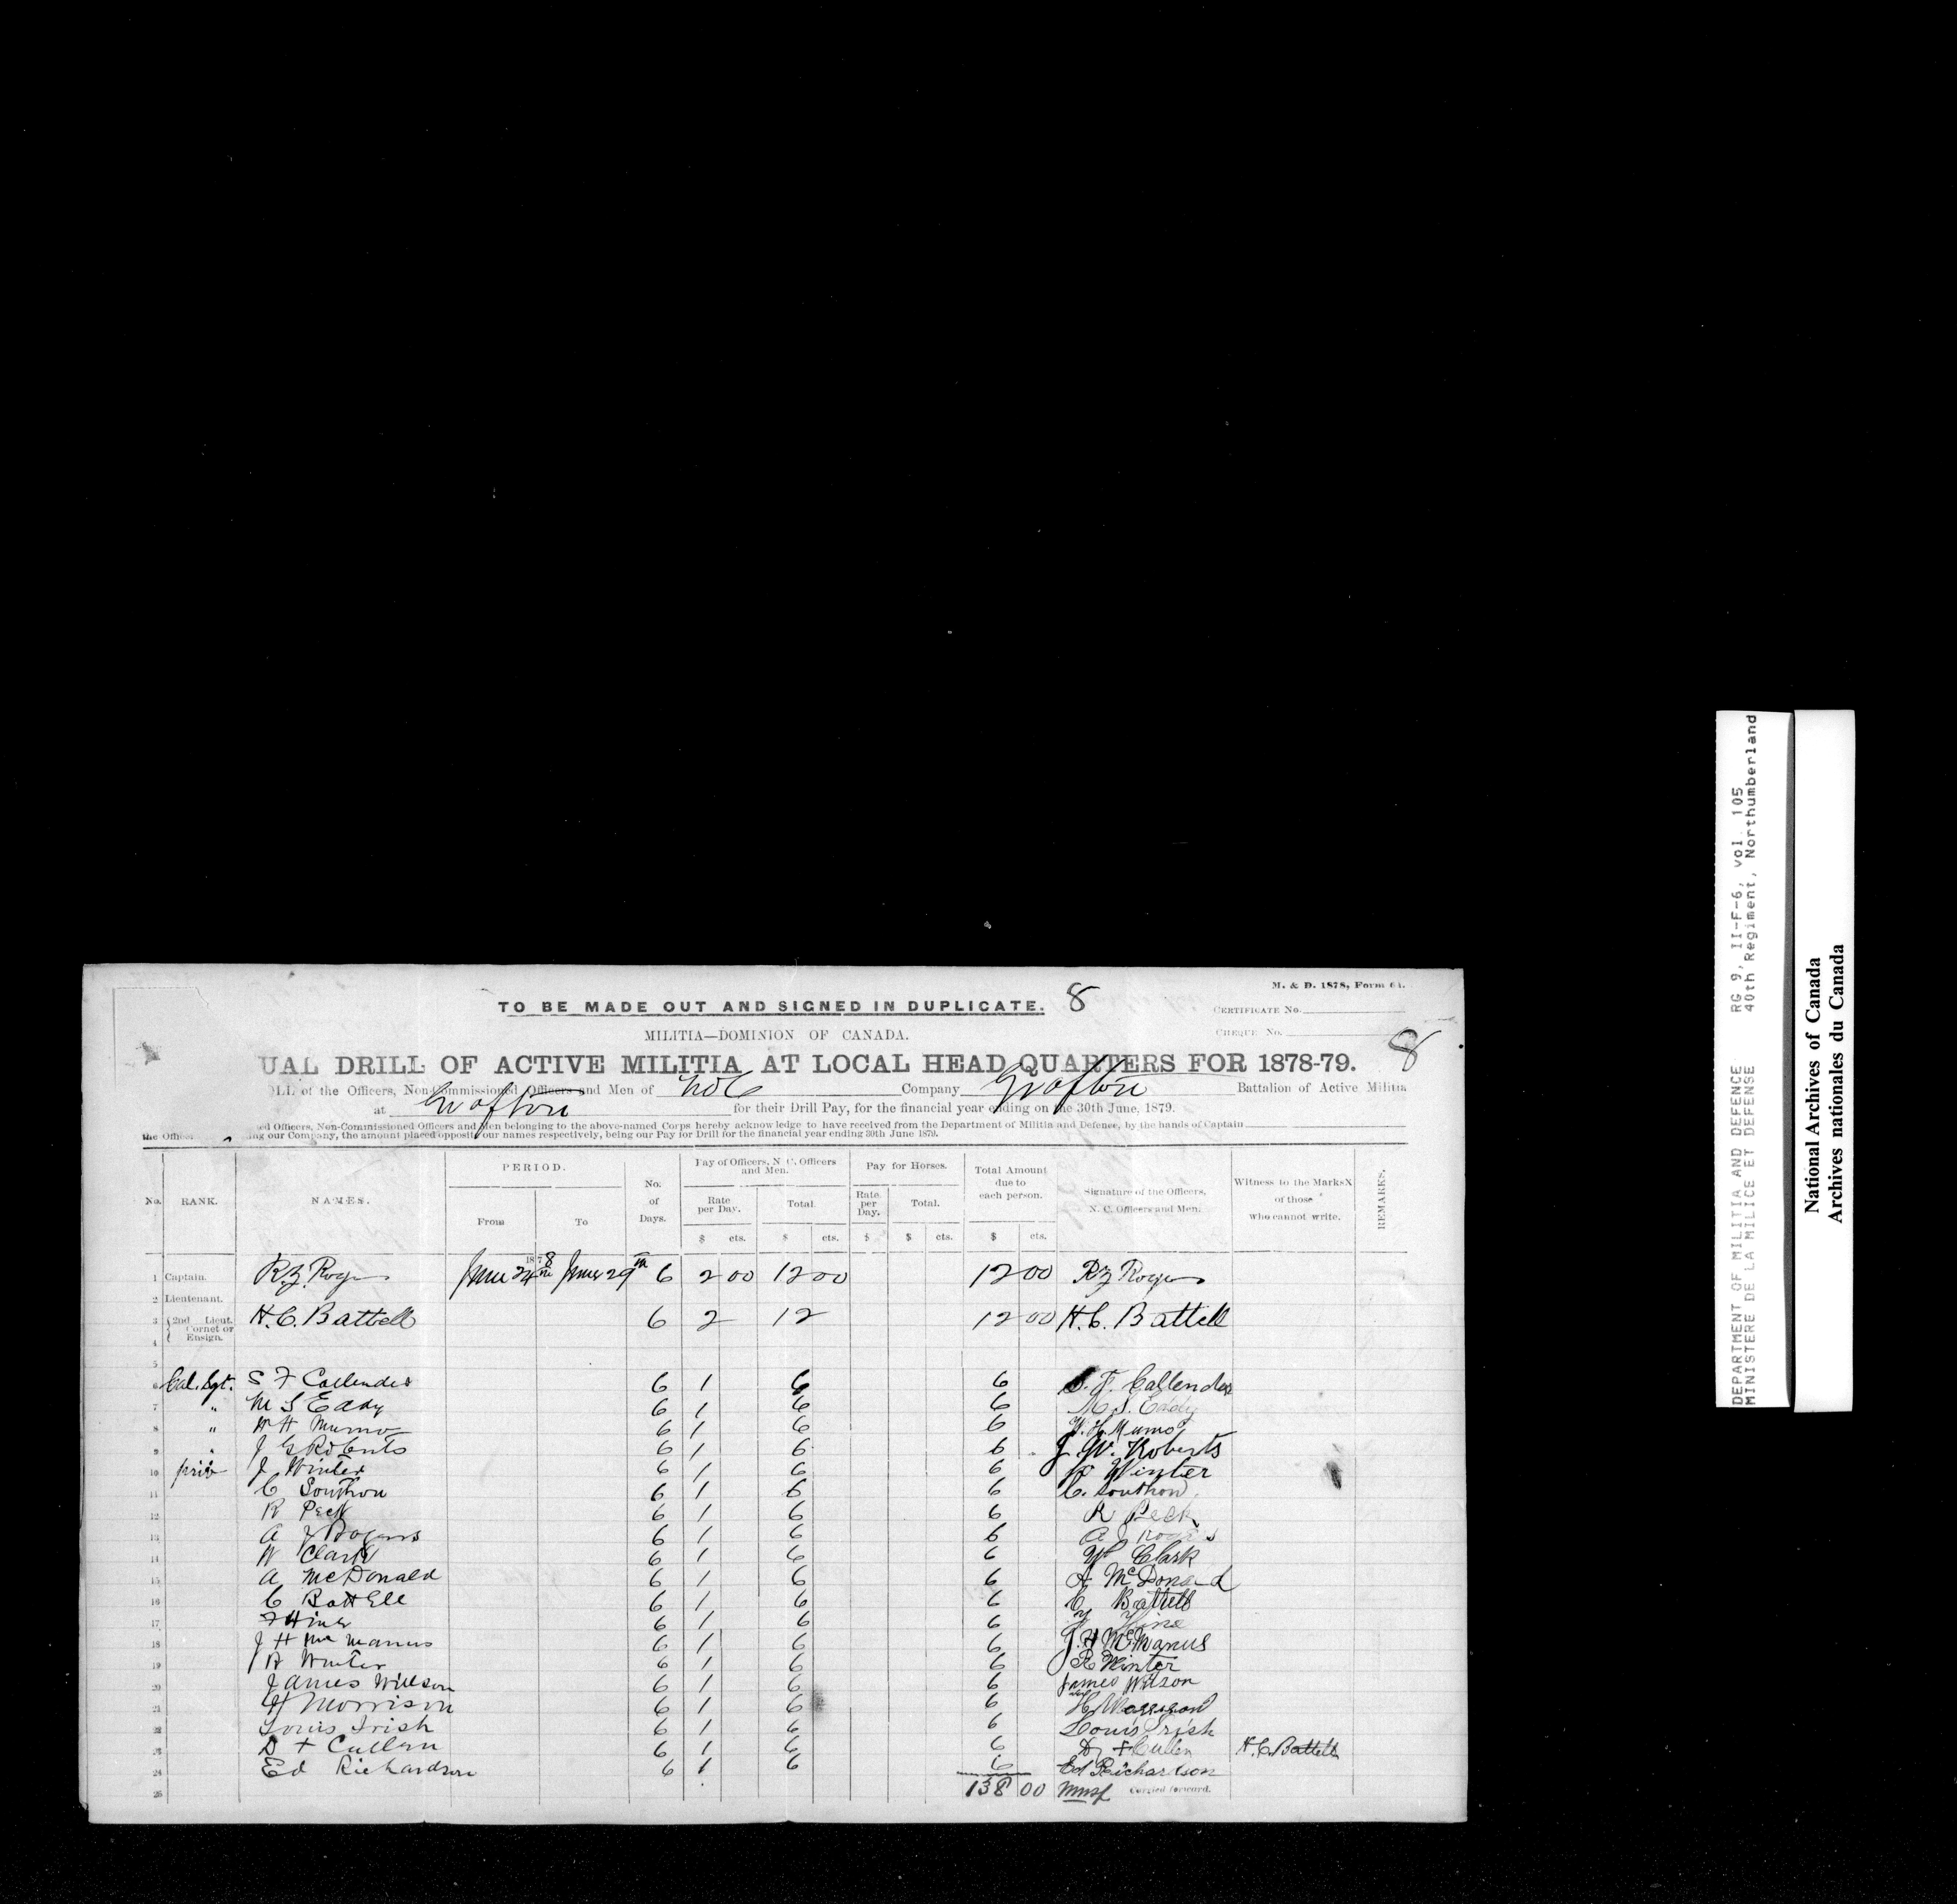 TO BE MADE OUT AND SIGNED IN DUPLICATE. 8
M. & D. 1878, Form 61.
CERTIFICATE No.
MILITIA—DOMINION OF CANADA.
CHEQUE No.
8
UAL DRILL OF ACTIVE MILITIA AT LOCAL HEAD QUARTERS FOR 1878-79.
OLL of the Officers, Non-Commissioned Officers and Men of No 6 Company Grafton Battalion of Active Militia
at Grafton for their Drill Pay, for the financial year ending on the 30th June, 1879.
ed Officers, Non-Commissioned Officers and Men belonging to the above-named Corps hereby acknowledge to have received from the Department of Militia and Defence, by the hands of Captain
the Officer ing our Company, the amount placed opposite our names respectively, being our Pay for Drill for the financial year ending 30th June 1879.
No. RANK. NAMES. PERIOD. From To No. of Days. Pay of Officers, N. C. Officers and Men. Rate per Day. Total Pay for Horses. Rate per Day. Total. Total Amount due to each person. Signature of the Officers, N. C. Officers and Men. Witness to the Marks X of those who cannot write. REMARKS.
$ cts. $ cts. $ $ cts. $ cts.
1878
1 Captain. R.Z. Rogers June 24th June 29th 6 2 00 12 00 12 00 RZ Rogers
2 Lieutenant.
3 2nd Lieut. Cornet or Ensign. H. C. Battell 6 2 12 12 00 H. C. Battell
4
5
6 Col. Sgt. S F Callender 6 1 6 6 S. F. Callender
7 " M S Eddy 6 1 6 6 M. S. Eddy
8 " W H Munro 6 1 6 6 W. H. Munro
9 " J G Roberts 6 1 6 6 J. W. Roberts
10 priv J Winter 6 1 6 6 Winter
11 C Southon 6 1 6 6 C. Southon
12 R Peck 6 1 6 6 R Peck
13 A J Rogers 6 1 6 6 A J Rogers
14 W Clark 6 1 6 6 W Clark
15 A McDonald 6 1 6 6 A McDonald
16 C Battell 6 1 6 6 C Battell
17 F Hine 6 1 6 6 Hine
18 J H McManus 6 1 6 6 J. H McManus
19 R Winter 6 1 6 6 R Winter
20 James Willson 6 1 6 6 James Wilson
21 H Morrison 6 1 6 6 H Morrison
22 Louis Irish 6 1 6 6 Louis Irish
23 D + Cullen 6 1 6 6 D + Cullen H. C. Battell
24 Ed Richardson 6 1 6 6 Ed Richardson
25 138 00 Carried forward.
DEPARTMENT OF MILITIA AND DEFENCE RG 9, II-F-6, vol. 105
MINISTERE DE LA MILICE ET DEFENSE 40th Regiment, Northumberland
National Archives of Canada
Archives nationales du Canada